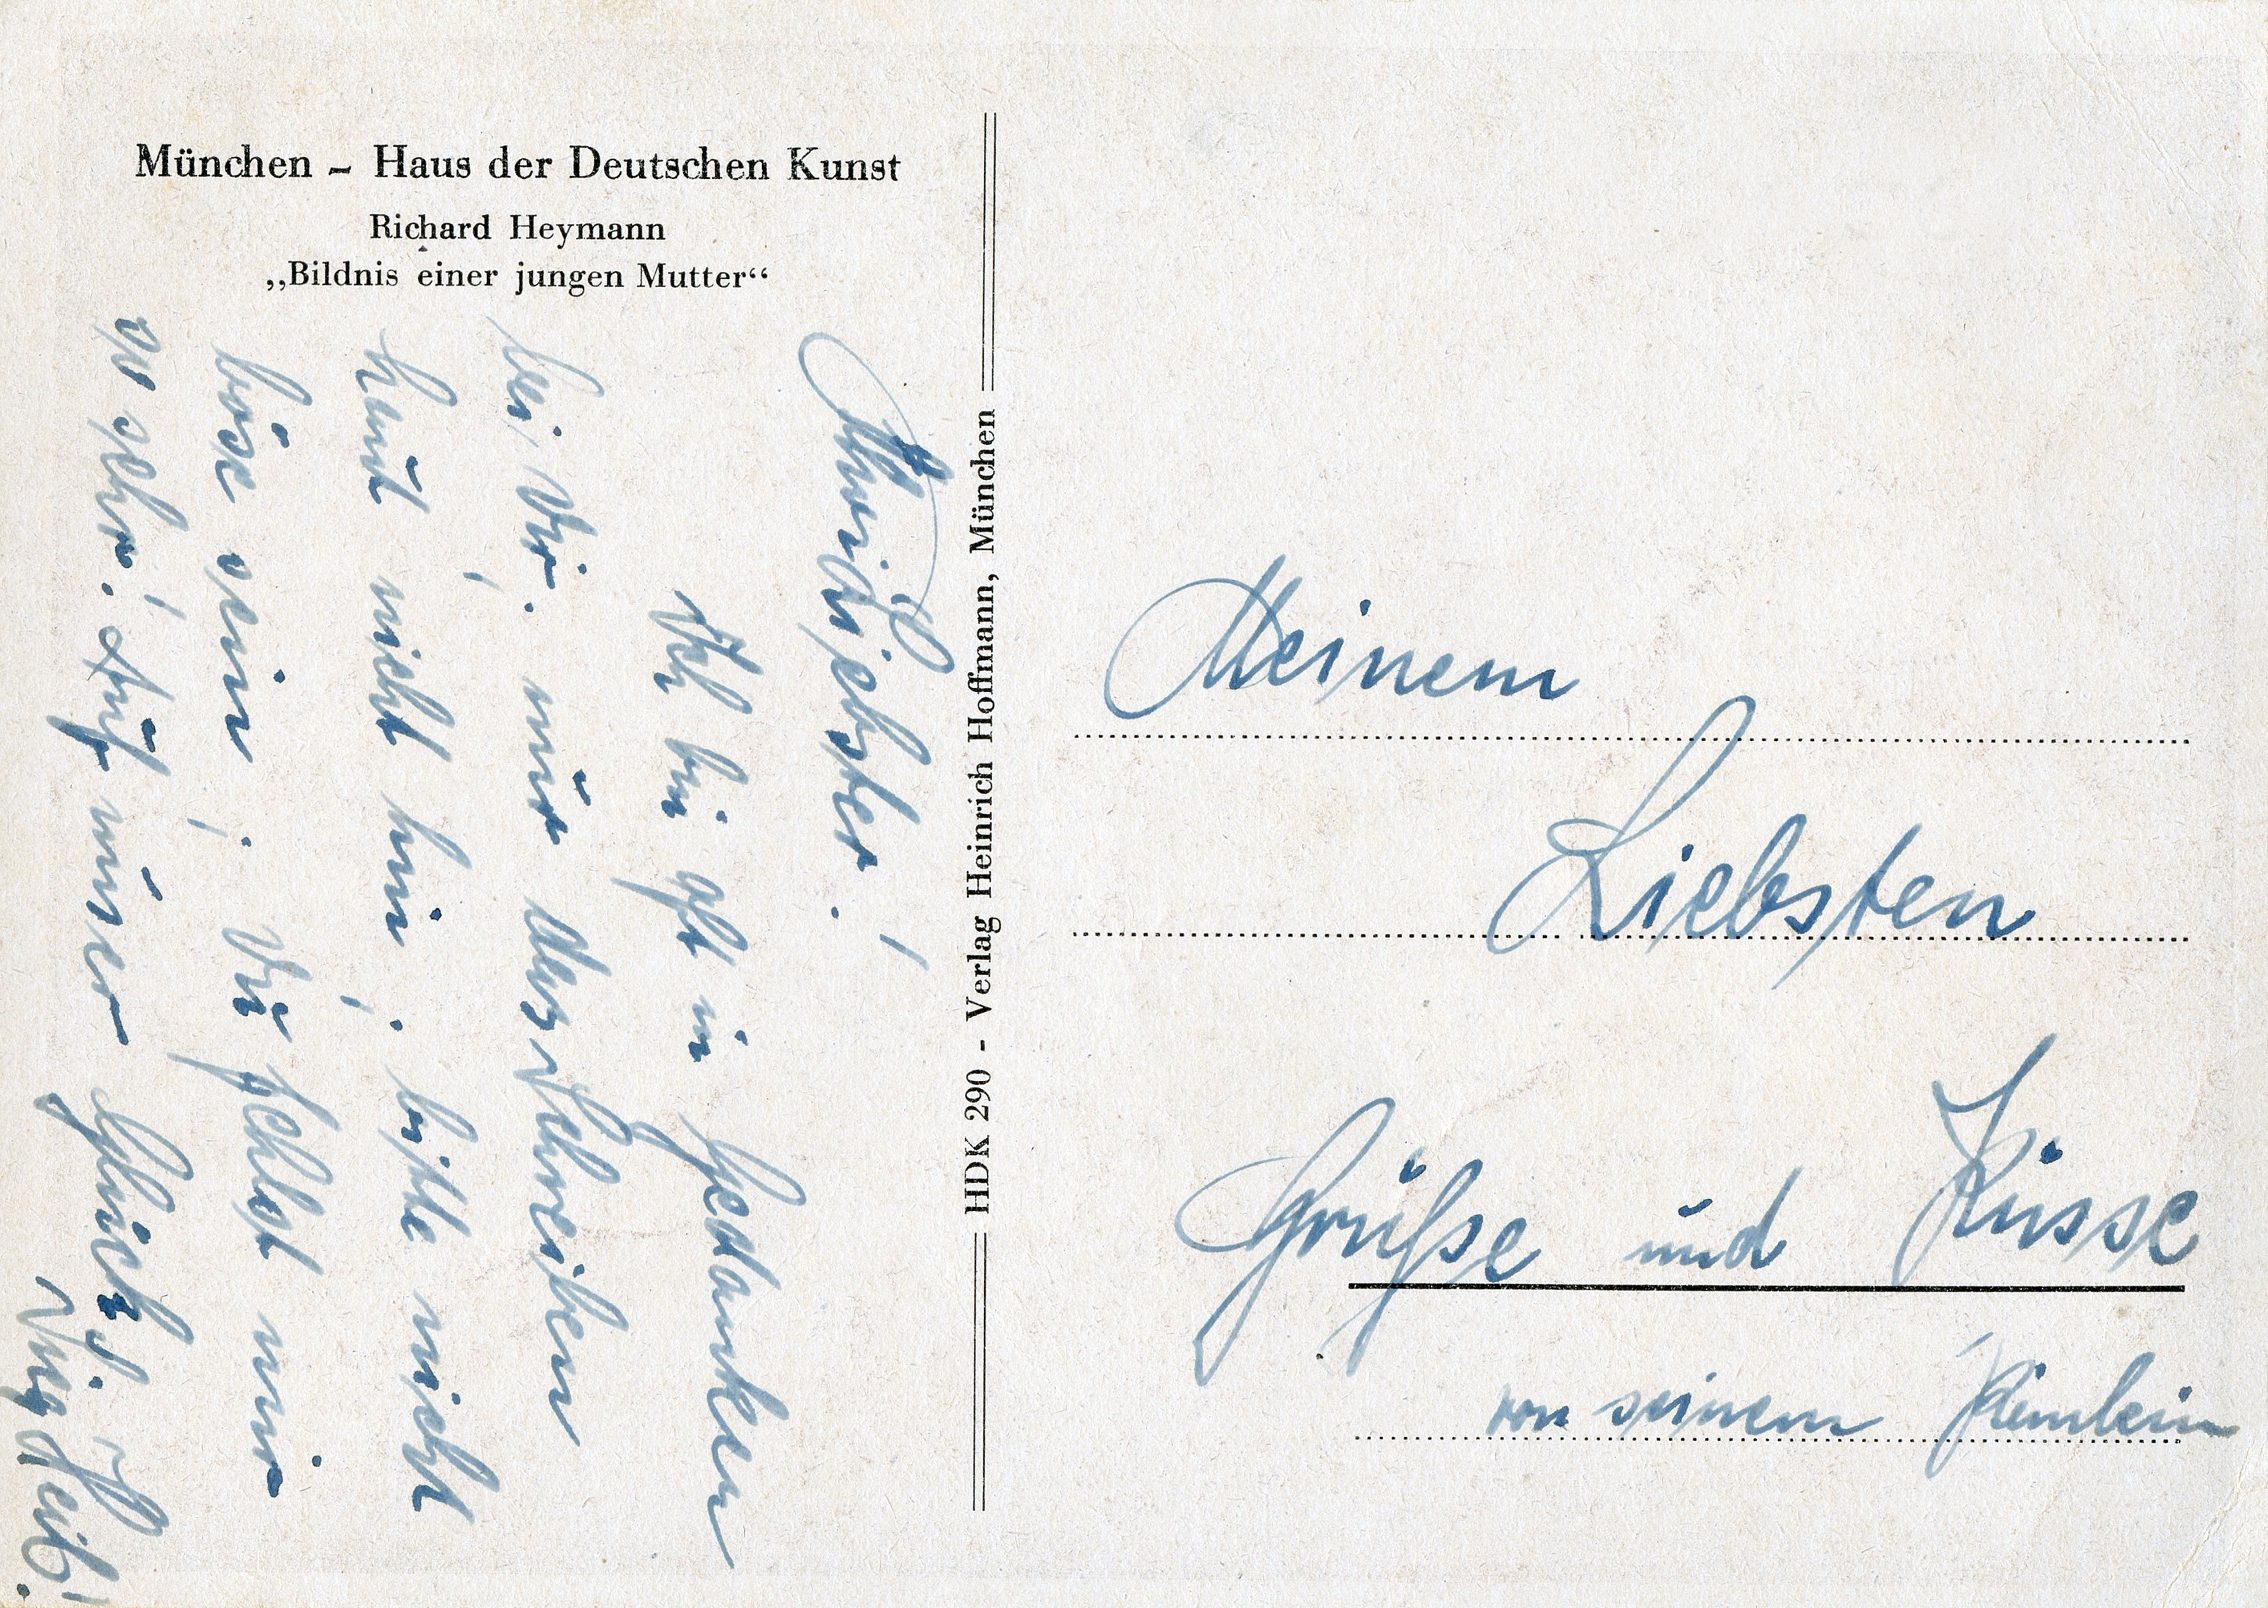 München – Haus der Deutschen Kunst
Richard Heymann
„Bildnis einer jungen Mutter“
Herzliebster!
Ich bin oft in Gedanken
bei Dir. nur das Schreiben
haut nicht hin! bitte nicht
böse sein! Du fehlst mir
so sehr! Auf unser Glück!
Dein
HDK 290 - Verlag Heinrich Hoffmann, München
Meinem
Liebsten
Grüße und Küsse
von seinem